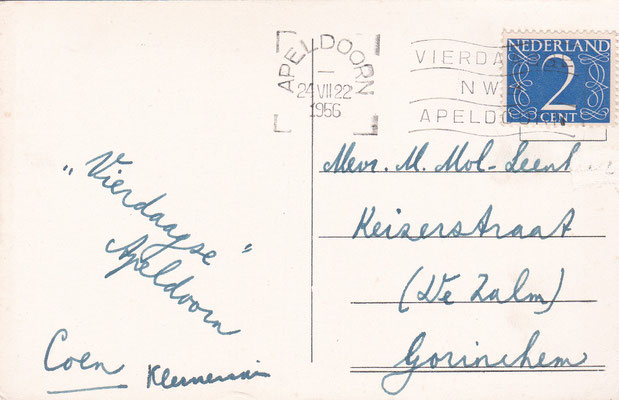 APELDOORN
24 VII 22
1956
VIERDA
N W
APELDOORN
NEDERLAND
2
CENT
"Vierdaagse"
Apeldoorn
Coen
Mevr. M. Mol-Leent
Keizerstraat
(De Zalm)
Gorinchem